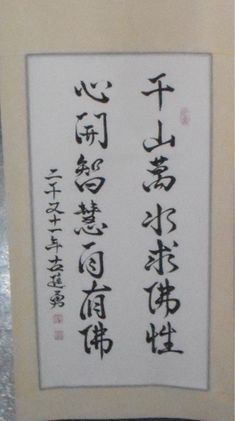 千山萬水求佛性
心開智慧自有佛
二千又十一年古進勇